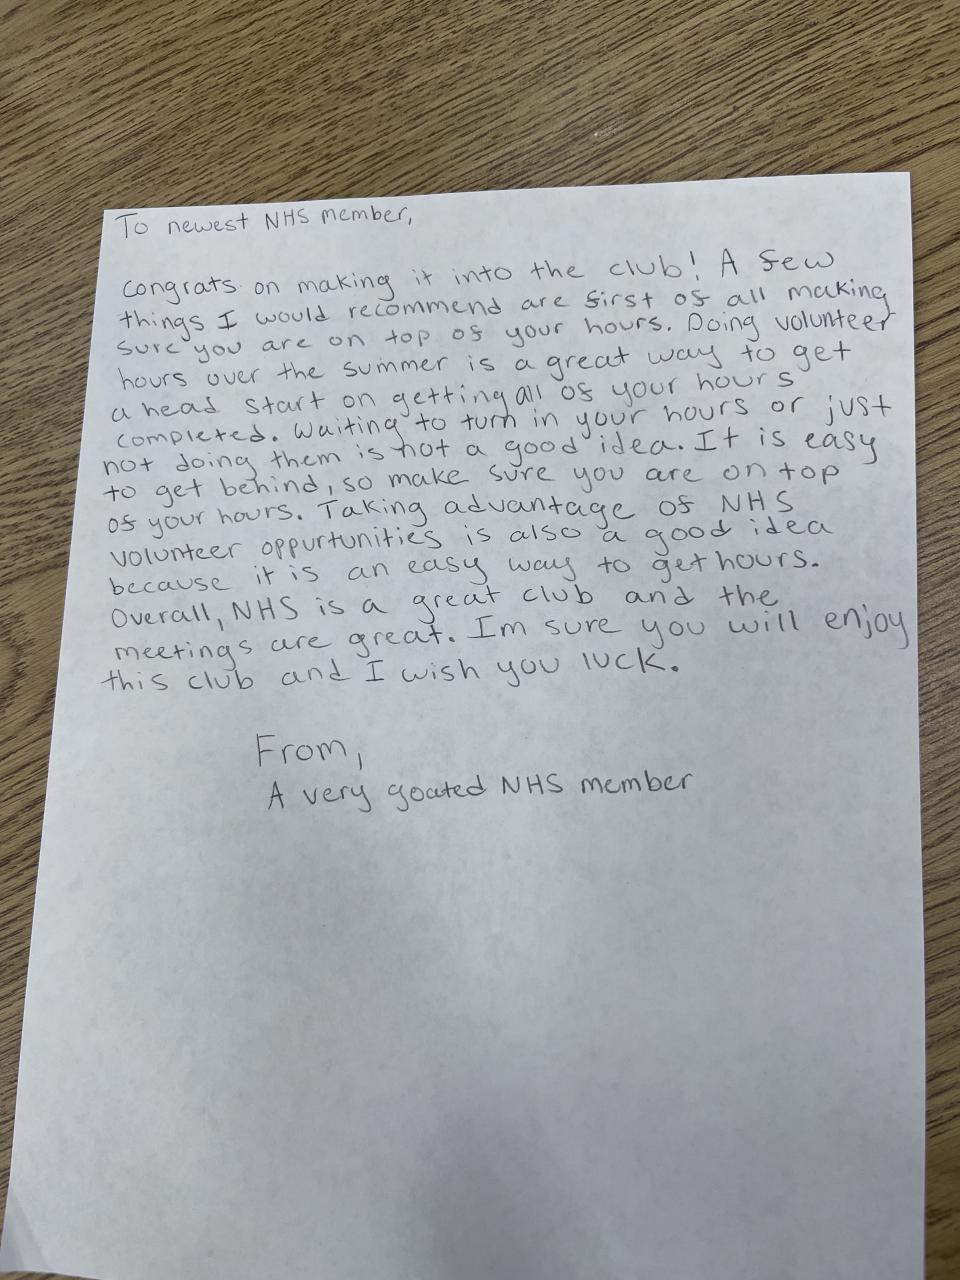 To newest NHS member,
Congrats on making it into the club! A few
things I would recommend are first of all making
sure you are on top of your hours. Doing volunteer
hours over the summer is a great way to get
a head start on getting all of your hours
completed. Waiting to turn in your hours or just
not doing them is not a good idea. It is easy
to get behind, so make sure you are on top
of your hours. Taking advantage of NHS
volunteer oppurtunities is also a good idea
because it is an easy way to get hours.
Overall, NHS is a great club and the
meetings are great. Im sure you will enjoy
this club and I wish you luck.
From,
A very goated NHS member